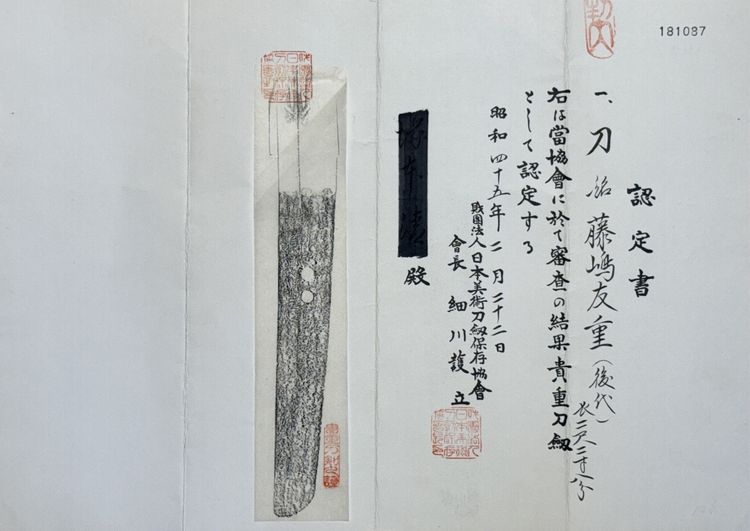 181087
認定書
一、刀 銘 藤嶋友重(後代)
長二尺二寸八分
右は當協會に於て審査の結果貴重刀劔
として認定する
昭和四十五年二月二十二日
財團法人日本美術刀劔保存協會
會長 細川護立
殿